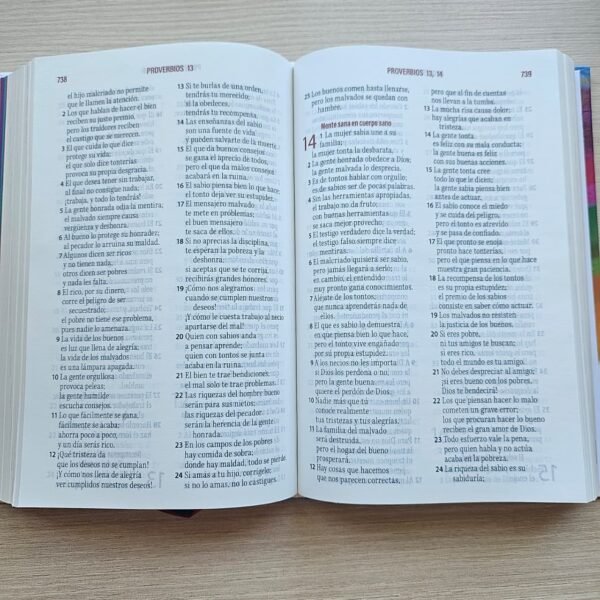 738
PROVERBIOS 13
el hijo malcriado no permite
que le llamen la atención.
2 Los que hablan de hacer el bien
reciben su justo premio,
pero los traidores reciben
el castigo que se merecen.
3 El que cuida lo que dice
protege su vida;
el que solo dice tonterías
provoca su propia desgracia.
4 El que desea tener sin trabajar,
al final no consigue nada;
¡trabaja, y todo lo tendrás!
5 La gente honrada odia la mentira;
el malvado siempre causa
vergüenza y deshonra.
6 Al bueno lo protege su honradez;
al pecador lo arruina su maldad.
7 Algunos dicen ser ricos
y no tienen nada;
otros dicen ser pobres
y nada les falta.
8 El rico, por su dinero,
corre el peligro de ser
secuestrado;
el pobre no tiene ese problema,
pues nadie lo amenaza.
9 La vida de los buenos
es luz que llena de alegría;
la vida de los malvados
es una lámpara apagada.
10 La gente orgullosa
provoca peleas;
la gente humilde
escucha consejos.
11 Lo que fácilmente se gana,
fácilmente se acaba;
ahorra poco a poco,
y un día serás rico.
12 ¡Qué tristeza da
que los deseos no se cumplan!
¡Y cómo nos llena de alegría
ver cumplidos nuestros deseos!
13 Si te burlas de una orden,
tendrás tu merecido;
si la obedeces,
tendrás tu recompensa.
14 Las enseñanzas del sabio
son una fuente de vida;
y pueden salvarte de la muerte.
15 El que da buenos consejos
se gana el aprecio de todos;
pero el que da malos consejos
acabará en la ruina.
16 El sabio piensa bien lo que hace,
el tonto deja ver su estupidez.
17 El mensajero malvado
te mete en problemas;
el buen mensajero
te saca de ellos.
18 Si no aprecias la disciplina,
te esperan la pobreza y la
deshonra;
si aceptas que se te corrija,
recibirás grandes honores.
19 ¡Cómo nos alegramos
cuando se cumplen nuestros
deseos!
¡Y cómo le cuesta trabajo al necio
apartarse del mal!
20 Quien con sabios anda
a pensar aprende;
quien con tontos se junta
acaba en la ruina.
21 El bien te trae bendiciones;
el mal solo te trae problemas.
22 Las riquezas del hombre bueno
serán para sus nietos;
las riquezas del pecador
serán la herencia de la gente
honrada.
23 En los campos de los pobres
hay comida de sobra;
donde hay maldad, todo se pierde.
24 Si amas a tu hijo, corrígelo;
si no lo amas, no lo castigues.
PROVERBIOS 13, 14
739
25 Los buenos comen hasta llenarse,
pero los malvados se quedan con
hambre.
Mente sana en cuerpo sano
14 1 La mujer sabia une a su
familia;
la mujer tonta la desbarata.
2 La gente honrada obedece a Dios;
la gente malvada lo desprecia.
3 Es de tontos hablar con orgullo;
es de sabios ser de pocas palabras.
4 Sin las herramientas apropiadas,
el trabajo no da fruto;
con buenas herramientas
se saca mejor provecho.
5 El testigo verdadero dice la verdad;
el testigo falso siempre dice
mentiras.
6 El malcriado quisiera ser sabio,
pero jamás llegará a serlo;
en cambio, el entendido
muy pronto gana conocimientos.
7 Aléjate de los tontos;
que nunca aprenderás nada de
ellos.
8 El que es sabio lo demuestra
en que piensa bien lo que hace;
pero el tonto vive engañado
por su propia estupidez.
9 A los necios no les importa
si Dios los perdona o no;
pero la gente buena
quiere el perdón de Dios.
10 Nadie más que tú
conoce realmente
tus tristezas y tus alegrías.
11 La familia del malvado
será destruida,
pero el hogar del bueno
prosperará.
12 Hay cosas que hacemos
que nos parecen correctas,
pero que al fin de cuentas
nos llevan a la tumba.
13 La mucha risa causa dolor;
hay alegrías que acaban en
tristeza.
14 La gente tonta
es feliz con su mala conducta;
la gente buena es feliz
con sus buenas acciones.
15 La gente tonta cree
todo lo que le dicen;
la gente sabia piensa bien
antes de actuar.
16 El sabio conoce el miedo
y se cuida del peligro,
pero el tonto es atrevido
y se pasa de confiado.
17 El que pronto se enoja
pronto hace tonterías,
pero el que piensa en lo que hace
muestra gran paciencia.
18 La recompensa de los tontos
es su propia estupidez;
el premio de los sabios
consiste en saber cómo actuar.
19 Los malvados no resisten
la justicia de los buenos.
20 Si eres pobre,
ni tus amigos te buscan;
si eres rico,
todo el mundo es tu amigo.
21 No debes despreciar al amigo;
¡si eres bueno con los pobres,
Dios te bendecirá!
22 Los que piensan hacer lo malo
cometen un grave error;
los que procuran hacer lo bueno
reciben el gran amor de Dios.
23 Todo esfuerzo vale la pena,
pero quien habla y no actúa
acaba en la pobreza.
24 La riqueza del sabio es su
sabiduría;